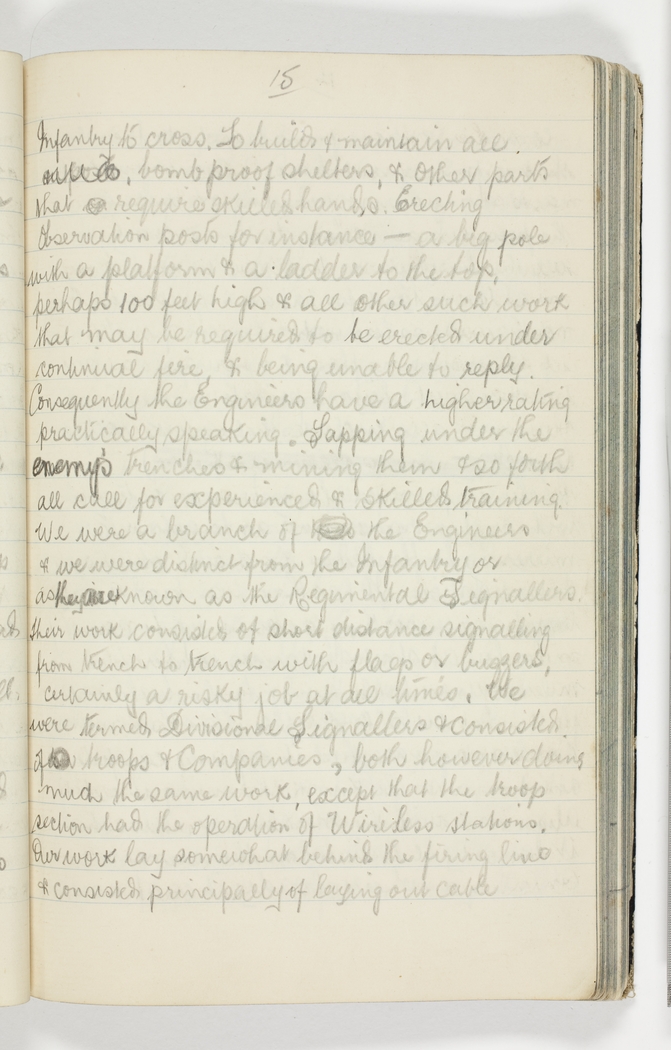 15
Infantry to cross. To build & maintain all.
bomb proof shelters, & other parts
that require skilled hands. Erecting
Observation posts for instance — a big pole
with a platform & a ladder to the top,
perhaps 100 feet high & all other such work
that may be required to be erected under
continual fire, & being unable to reply.
Consequently the Engineers have a higher rating
practically speaking. Sapping under the
enemy's trenches & mining them & so forth
all call for experienced & skilled training.
We were a branch of the Engineers
& we were distinct from the Infantry or
as they are known as the Regimental Signallers.
Their work consisted of short distance signalling
from trench to trench with flags or buzzers,
certainly a risky job at all times. We
were termed Divisional Signallers & consisted
of troops & Companies, both however doing
much the same work, except that the troop
section had the operation of Wireless stations.
Our work lay somewhat behind the firing line
& consisted principally of laying out cable